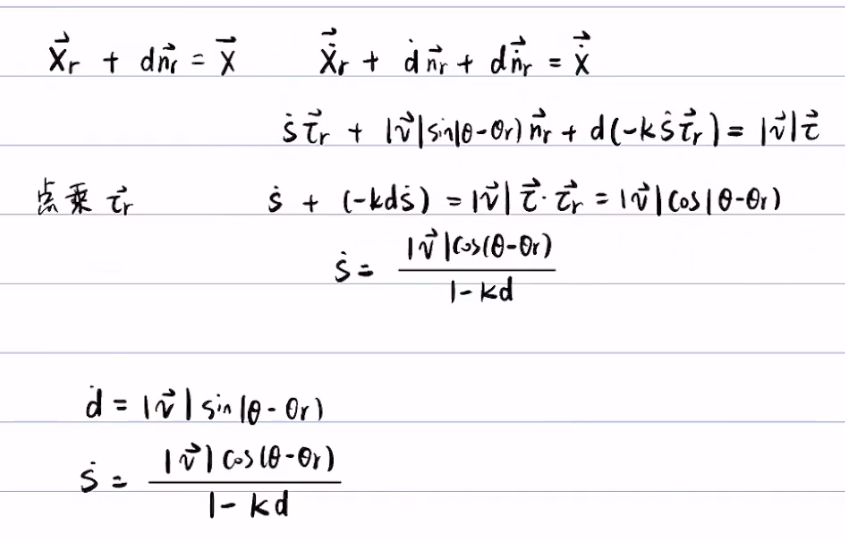 $\vec{x}_r + d\vec{n}_r = \vec{x}$  $\dot{\vec{x}}_r + \dot{d}\vec{n}_r + d\dot{\vec{n}}_r = \dot{\vec{x}}$
$\dot{s}\vec{\tau}_r + |\vec{v}|\sin(\theta-\theta_r)\vec{n}_r + d(-k\dot{s}\vec{\tau}_r) = |\vec{v}|\vec{\tau}$
点乘 $\vec{\tau}_r$  $\dot{s} + (-kd\dot{s}) = |\vec{v}|\vec{\tau}\cdot\vec{\tau}_r = |\vec{v}|\cos(\theta-\theta_r)$
$\dot{s} = \frac{|\vec{v}|\cos(\theta-\theta_r)}{1-kd}$
$\dot{d} = |\vec{v}|\sin(\theta-\theta_r)$
$\dot{s} = \frac{|\vec{v}|\cos(\theta-\theta_r)}{1-kd}$